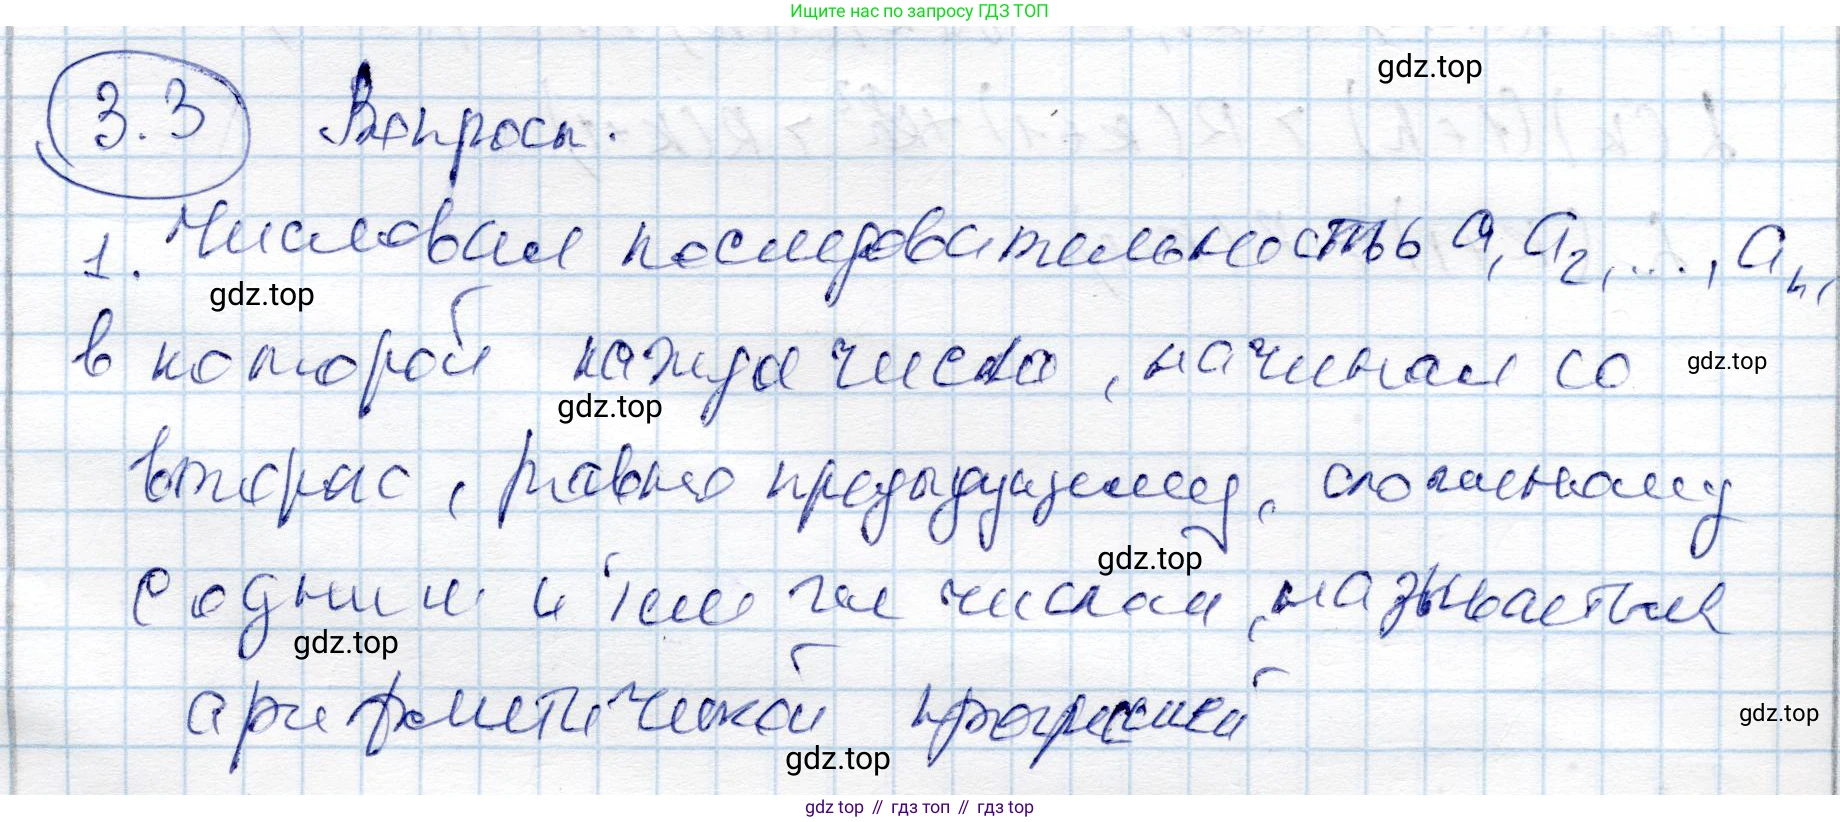 Ищите нас по запросу ГДЗ ТОП
gdz.top
3.3 Вопросы.
1. Числовая последовательность a₁, a₂, ..., aₙ,
gdz.top
в которой каждое число, начиная со
gdz.top
gdz.top
второго, равно предыдущему, сложенному
gdz.top
с одним и тем же числом, называется
gdz.top
арифметической прогрессией
gdz.top
gdz.top
gdz top // гдз топ // гдз top